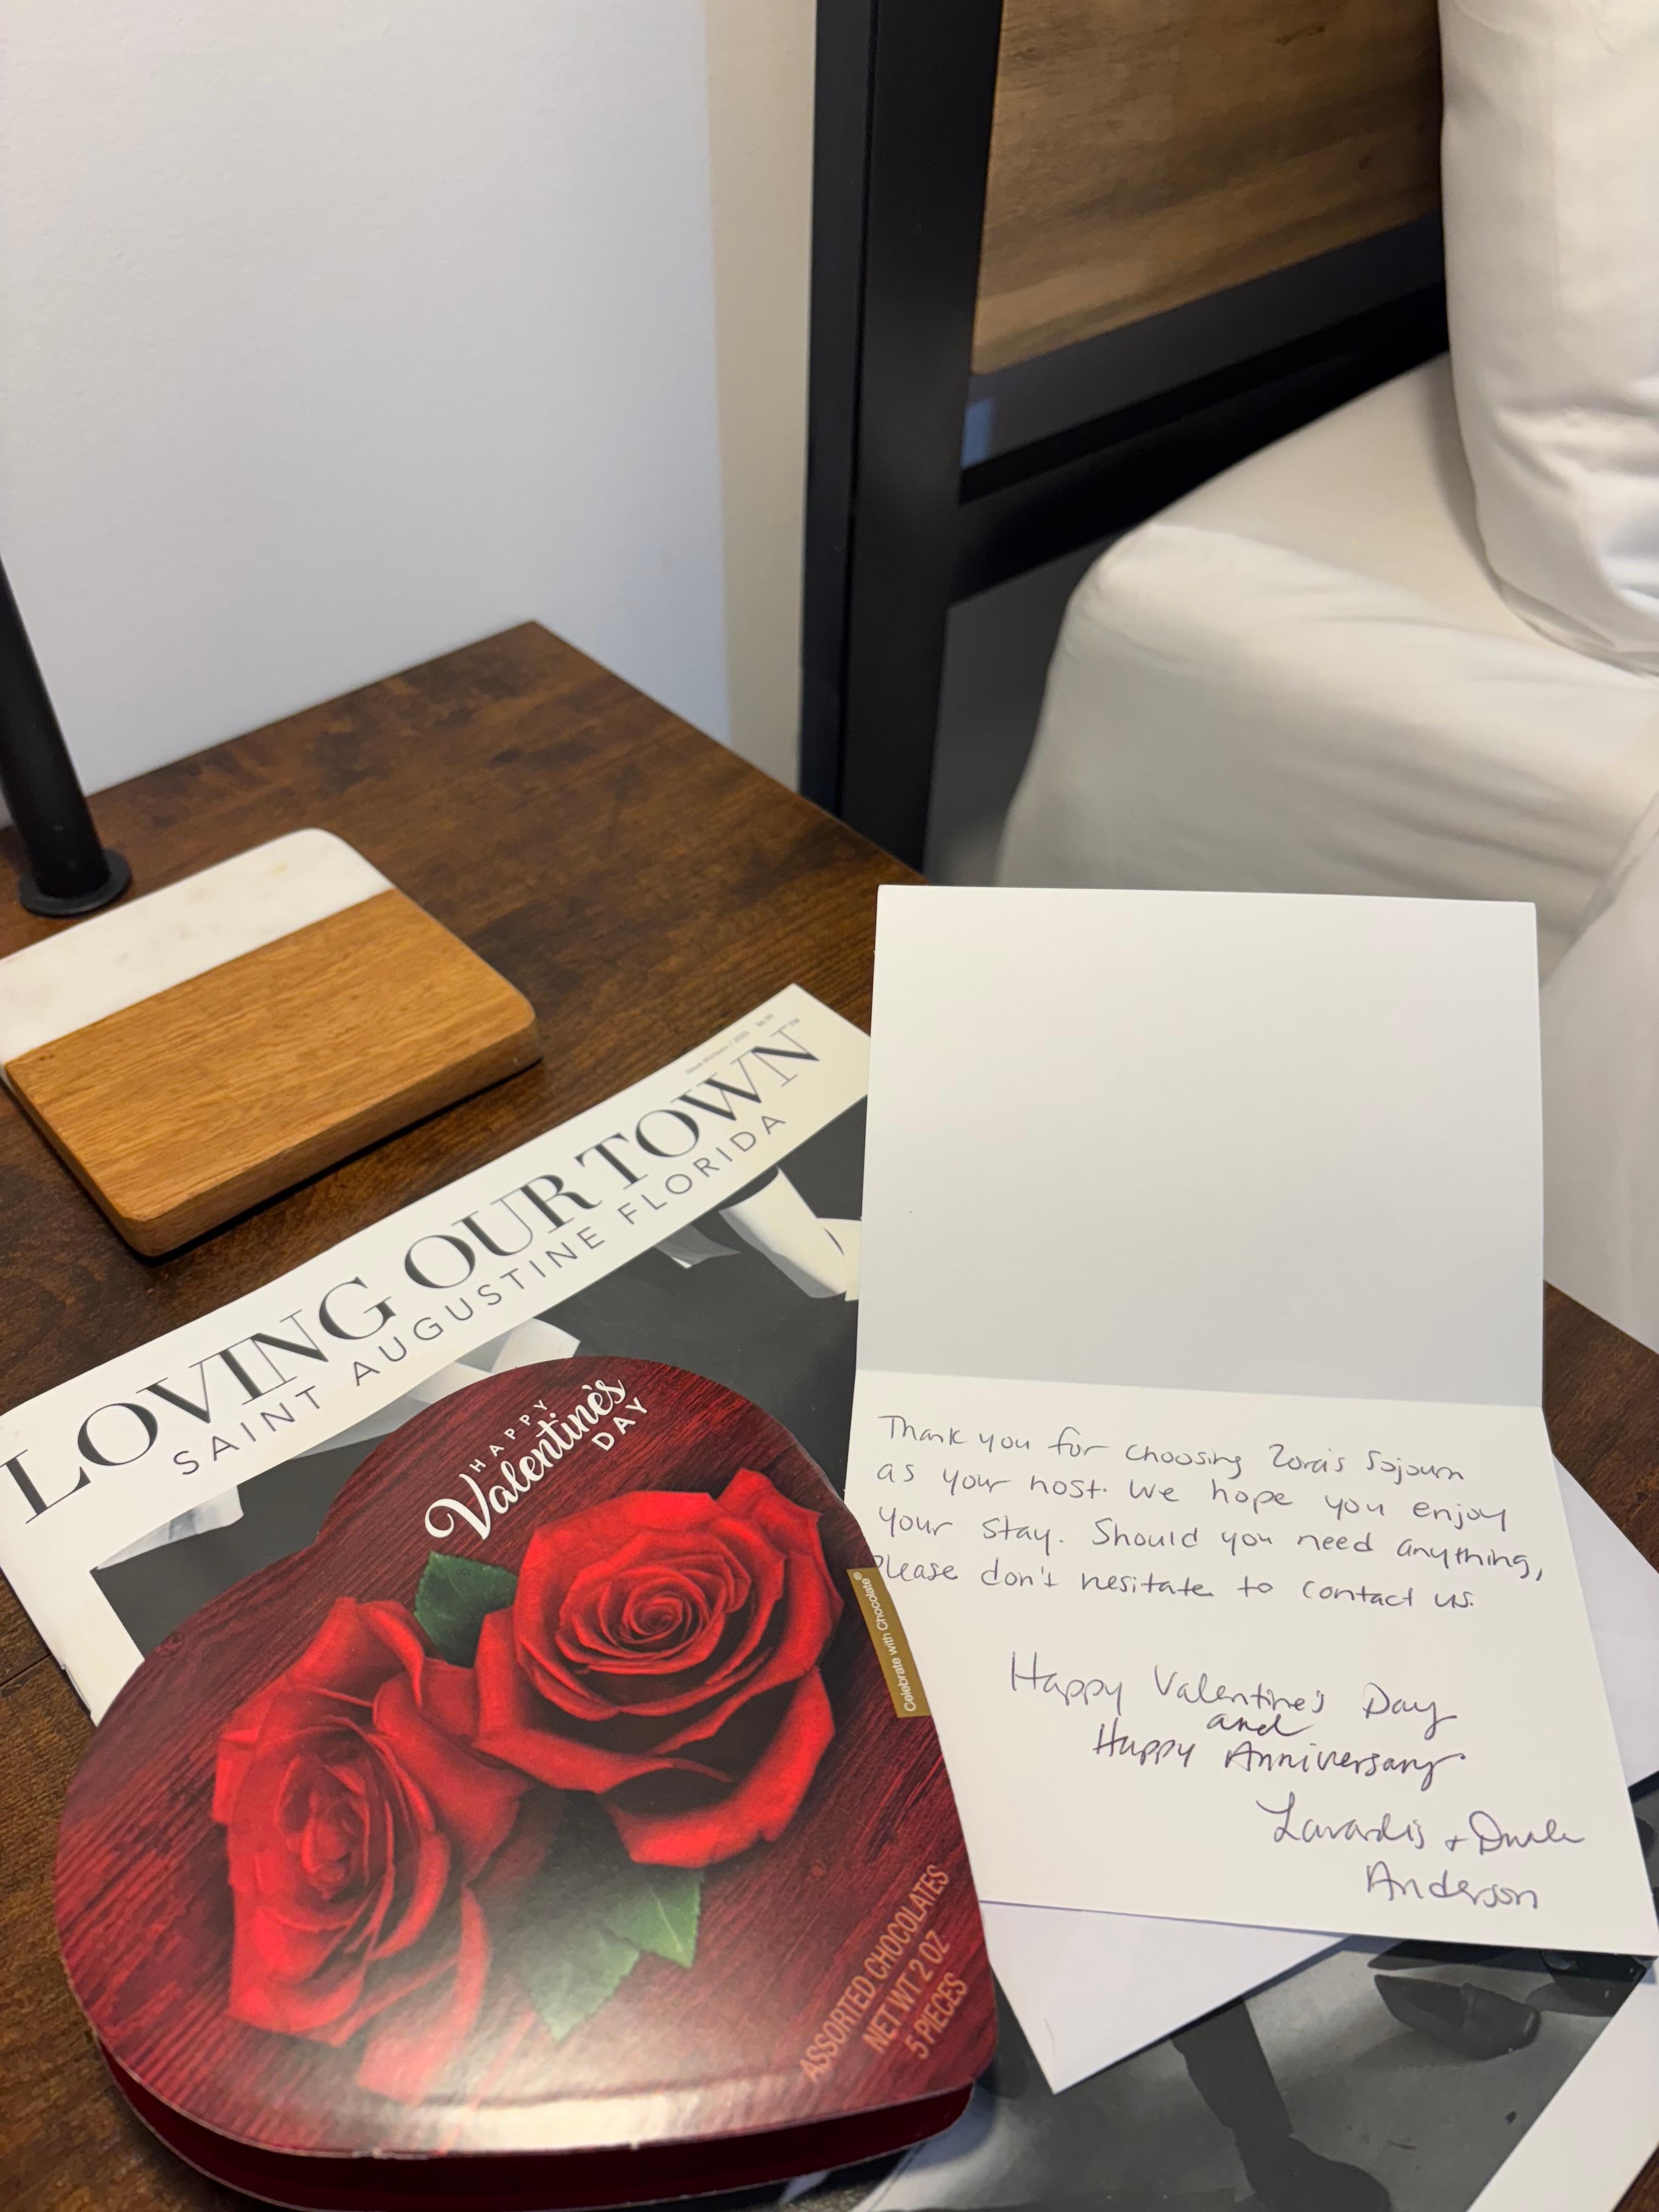 LOVING OUR TOWN™
SAINT AUGUSTINE FLORIDA
HAPPY
Valentine's
DAY
Celebrate with Chocolate®
ASSORTED CHOCOLATES
NET WT 2 OZ
5 PIECES
Thank you for choosing Zora's Sojourn
as your host. We hope you enjoy
your stay. Should you need anything,
Please don't hesitate to contact us.
Happy Valentine's Day
and
Happy Anniversary
Anderson